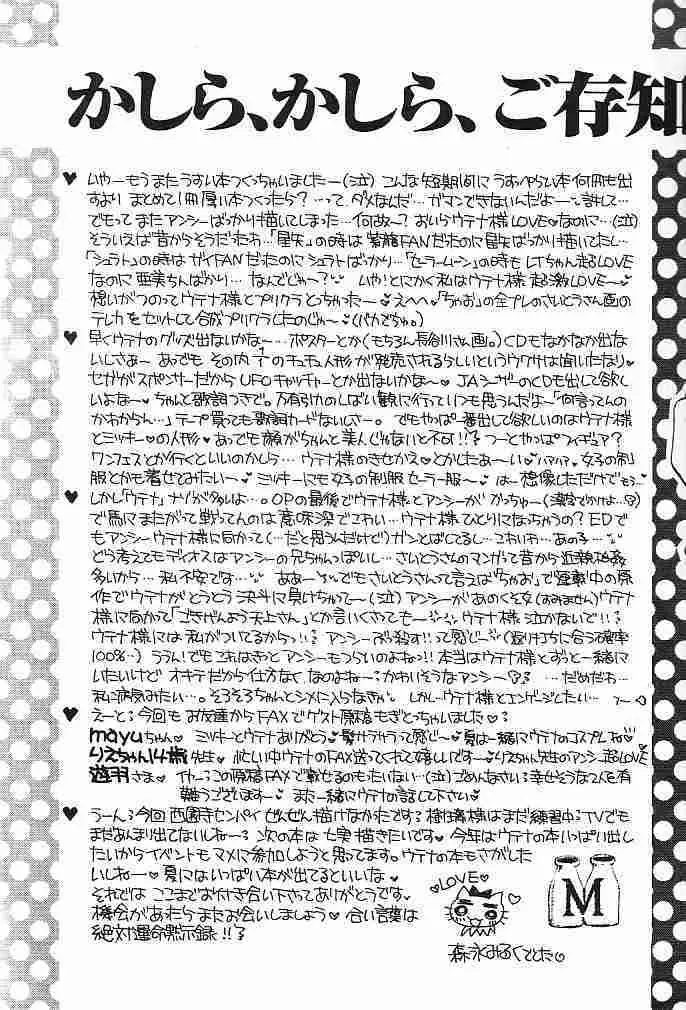 かしら、かしら、ご存知
♥ いやーもうまたうすい本つくっちゃいましたー(泣) こんな短期間にうすっぺらい本何冊も出
すより まとめて1冊厚い本つくったら？…って。ダメなんだ…ガマンできないんだよー…許して…
でもって またアンシーばっかり描いてしまった…何故〜？ おいらウテナ様LOVE♡なのに…(泣)
そういえば昔からそうだったわ…「星矢」の時は紫龍FANだったのに星矢ばっかり描いてたし…
「シュラト」の時はガイFANだったのにシュラトばっかり…「セーラームーン」の時もLTちゃん超LOVE
なのに亜美ちんばっかり…なんでじゃー？ いや！とにかく私はウテナ様 超激LOVE〜♡
想いがつのってウテナ様とプリクラとっちったー♡ えへへ。「ちゃお」の全プレのさいとうさん画の
テレカをセットして合成プリクラしたのじゃ〜♡(バカでちゅ。)
♥ 早くウテナのグッズ出ないかな〜…ポスターとか(もちろん長谷川さん画。)CDもなかなか出な
いしさぁー あっでも その内 チュチュ人形が発売されるらしいというウワサは聞いたなり♡
セガがスポンサーだから UFOキャッチャーとか出ないかな〜♡ JAシーザーのCDも出して欲し
いよな〜♡ ちゃんと歌詞つきで。万有引力のしばい観に行っていつも思うんだよ〜「何言ってんの
かわからん…」テープ買っても歌詞カードないしさー。でもやっぱ一番出して欲しいのはウテナ様
とミッキー♡の人形♡あっでも顔がちゃんと美人じゃないと不可!! つーとやっぱフィギュア？
ワンフェスとか行くといいのかしら…ウテナ様のきせかえ♡とかしたあーい♡ハァハァ。女子の制
服とかも着せてみたいー♡ ミッキーにも女子の制服 セーラー服〜♡ はー想像しただけでもう…
♥ しかし「ウテナ」ナゾが多いよ…。OPの最後でウテナ様とアンシーが がっちゅー(漢字でかけよ…)
で馬にまたがって戦ってんのは意味深でこわい…ウテナ様ひとりになっちゃうの？ EDで
もアンシーウテナ様に向かって(…だと思うんだけど)ガンとばしてるし…こわいわ…あの子…
どう考えてもディオスはアンシーの兄ちゃんっぽいし…さいとうさんのマンガって昔から近親相姦
多いから…私不安です… ああー でもさいとうさんって言えば「ちゃお」で連載中の原
作でウテナがとうとう決斗に負けちゃってー(泣) アンシーがあのくそ女(すみません)ウテナ
様に向かって「ごきげんよう天上さん」とか言いくさってもー ウテナ様泣かないで!!
ウテナ様には私がついてるから!! アンシーぶっ殺す!!って感じ〜(返り討ちに合う確率
100%…) ううん！でもこれはきっとアンシーもつらいのよねっ!! 本当はウテナ様とずっと一緒に
いたいけど オキテだから仕方なく なのよね〜 かわいそうなアンシー …だめだわ…
私に病気みたい…。そろそろちゃんとシメに入らなきゃ。しかしウテナ様とエンゲージしたい…
♥ えーと 今回もお友達からFAXでゲスト原稿もぎとっちゃいました♡
mayuちゃん♡ ミッキーとウテナありがとう♡髪サラサラって感じ〜♡夏は一緒にウテナのコスプレね♡
りえちゃん14歳先生♡ 忙しい中ウテナのFAX送ってくれて嬉しいです〜♡りえちゃん先生のアンシー超LOVE♡
遊羽さま♡ イヤーこの原稿FAXで載せるのもったいない…(泣)ごめんなさい 幸せそうな2人を有
難うございます〜♡ また一緒にウテナの話して下さい♡
♥ うーん 今回 西園寺センパイ ぜんぜん描けなかたです 樹璃様はまだ練習中 TVでも
まだあんまり出てないしね〜 次の本は七実描きたいです♡ 今年はウテナの本いっぱい出し
たいからイベントもマメに参加しようと思ってます。ウテナの本もさがした
いしねー♡ 夏にはいっぱい本が出てるといいな♡
それでは ここまでお付き合い下さってありがとうです。
機会があったらまたお会いしましょう♡ 合い言葉は
絶対運命黙示録!!
♡LOVE♡
M
森永みるくでした♡